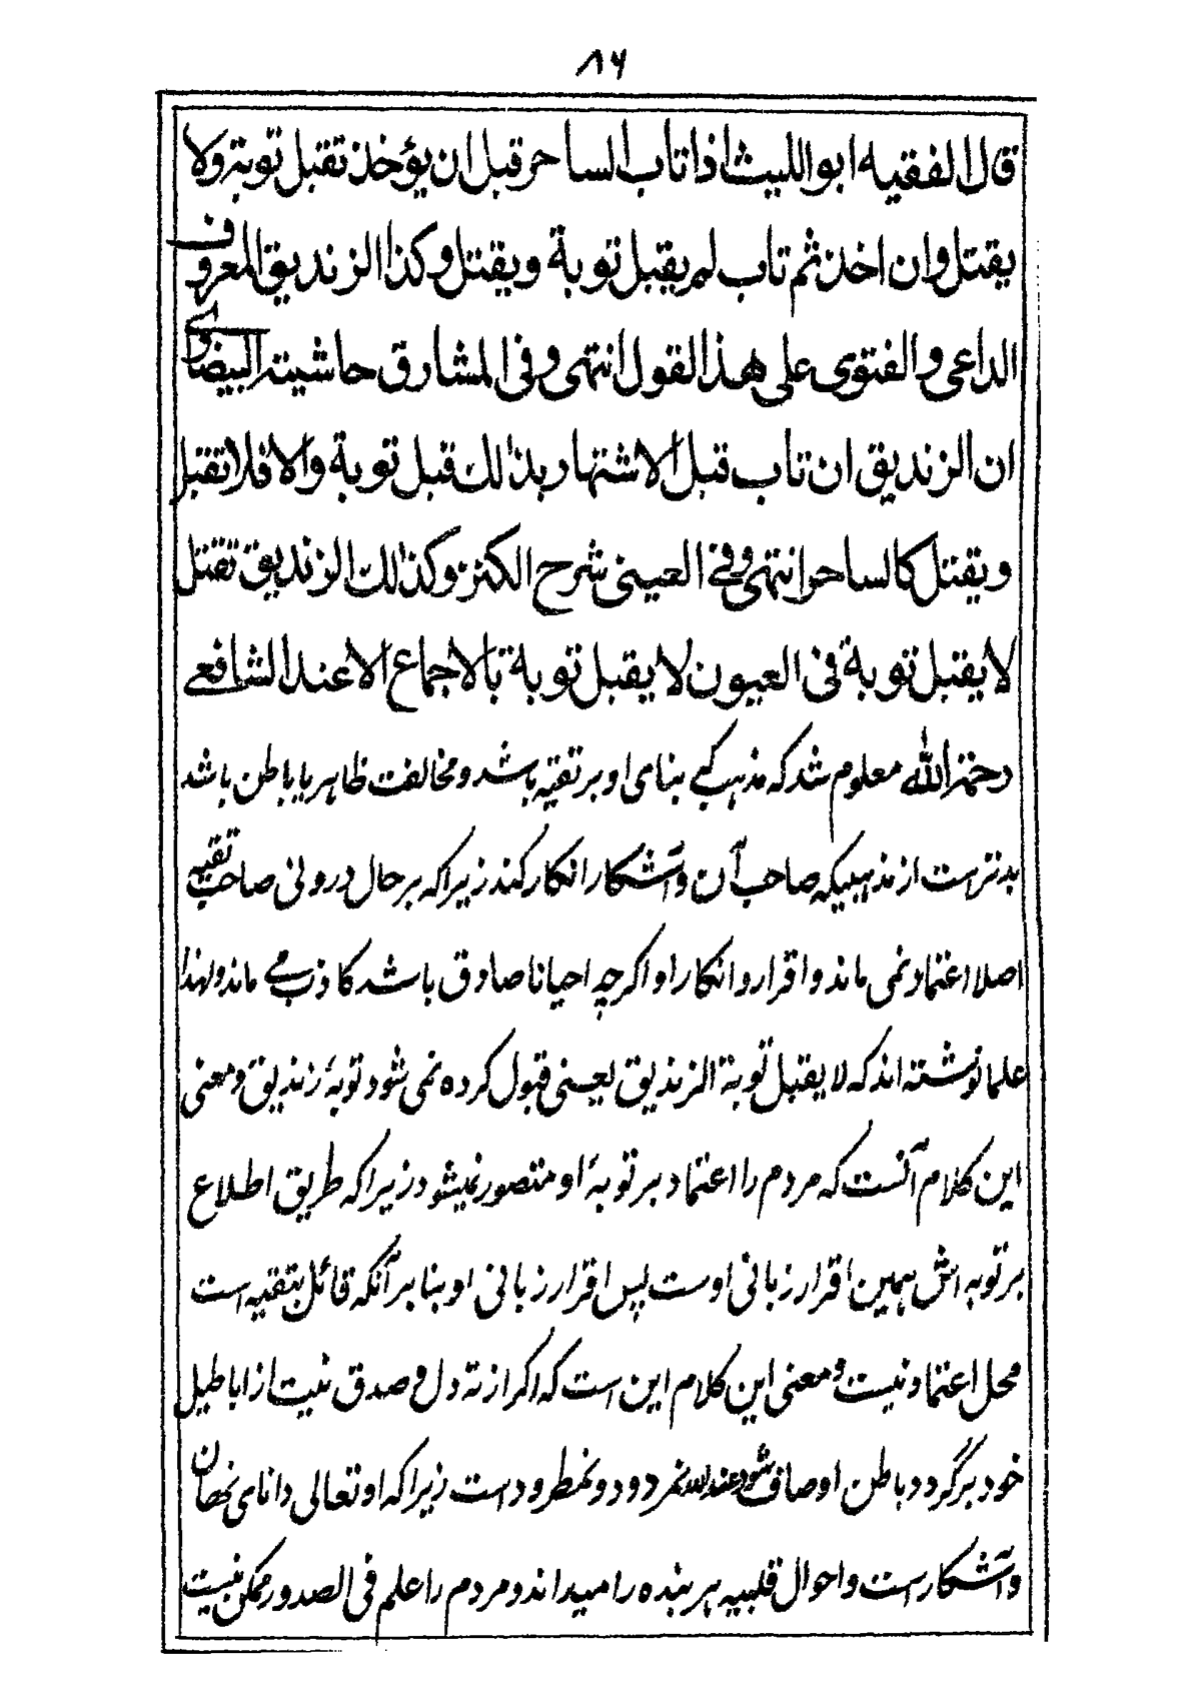 ۸۴
قال الفقیه ابو اللیث اذا تاب الساحر قبل ان یؤخذ تقبل توبته ولا
یقتل وان اخذ ثم تاب لم یقبل توبة ویقتل وکذا الزندیق المعروف
الداعی والفتوی علی هذا القول انتهی وفی المشارق حاشیته البیضاوی
ان الزندیق ان تاب قبل الاشتهار بذلک قبل توبة والا فلا تقبل
ویقتل کالساحر انتهی وفی العینی شرح الکنز وکذلک الزندیق تقتل
لا یقبل توبة فی العیون لا یقبل توبة بالاجماع الا عند الشافعے
رحمه الله معلوم شد که مذهب کے بنای او بر تقیّه باشد و مخالفت ظاهر یا باطن باشد
بدترست از مذهبیکه صاحب آن وآشکارا انکار کند زیرا که بر حال درونی صاحب تقیه
اصلا اعتماد نمی ماند و اقرار و انکار او اکرچه احیانا صادق باشد کاذب مے ماند ولهذا
علما نوشته اند که لا یقبل توبة الزندیق یعنی قبول کرده نمی شود توبۀ زندیق و معنی
این کلام آنست که مردم را اعتماد بر توبۀ او متصور نمیشود زیرا که طریق اطلاع
بر توبه اش همین اقرار زبانی اوست پس اقرار زبانی او بنا بر آنکه قائل بتقیه است
محل اعتماد نیست و معنی این کلام این است که اکر از ته دل و صدق نیت از اباطیل
خود برگردد و باطن او صاف شود عند الله نمردود و نمطرود است زیرا که او تعالی دانای نهان
وآشکار است و احوال قلبیه هر بنده را میداند و مردم را علم فی الصدور ممکن نیست